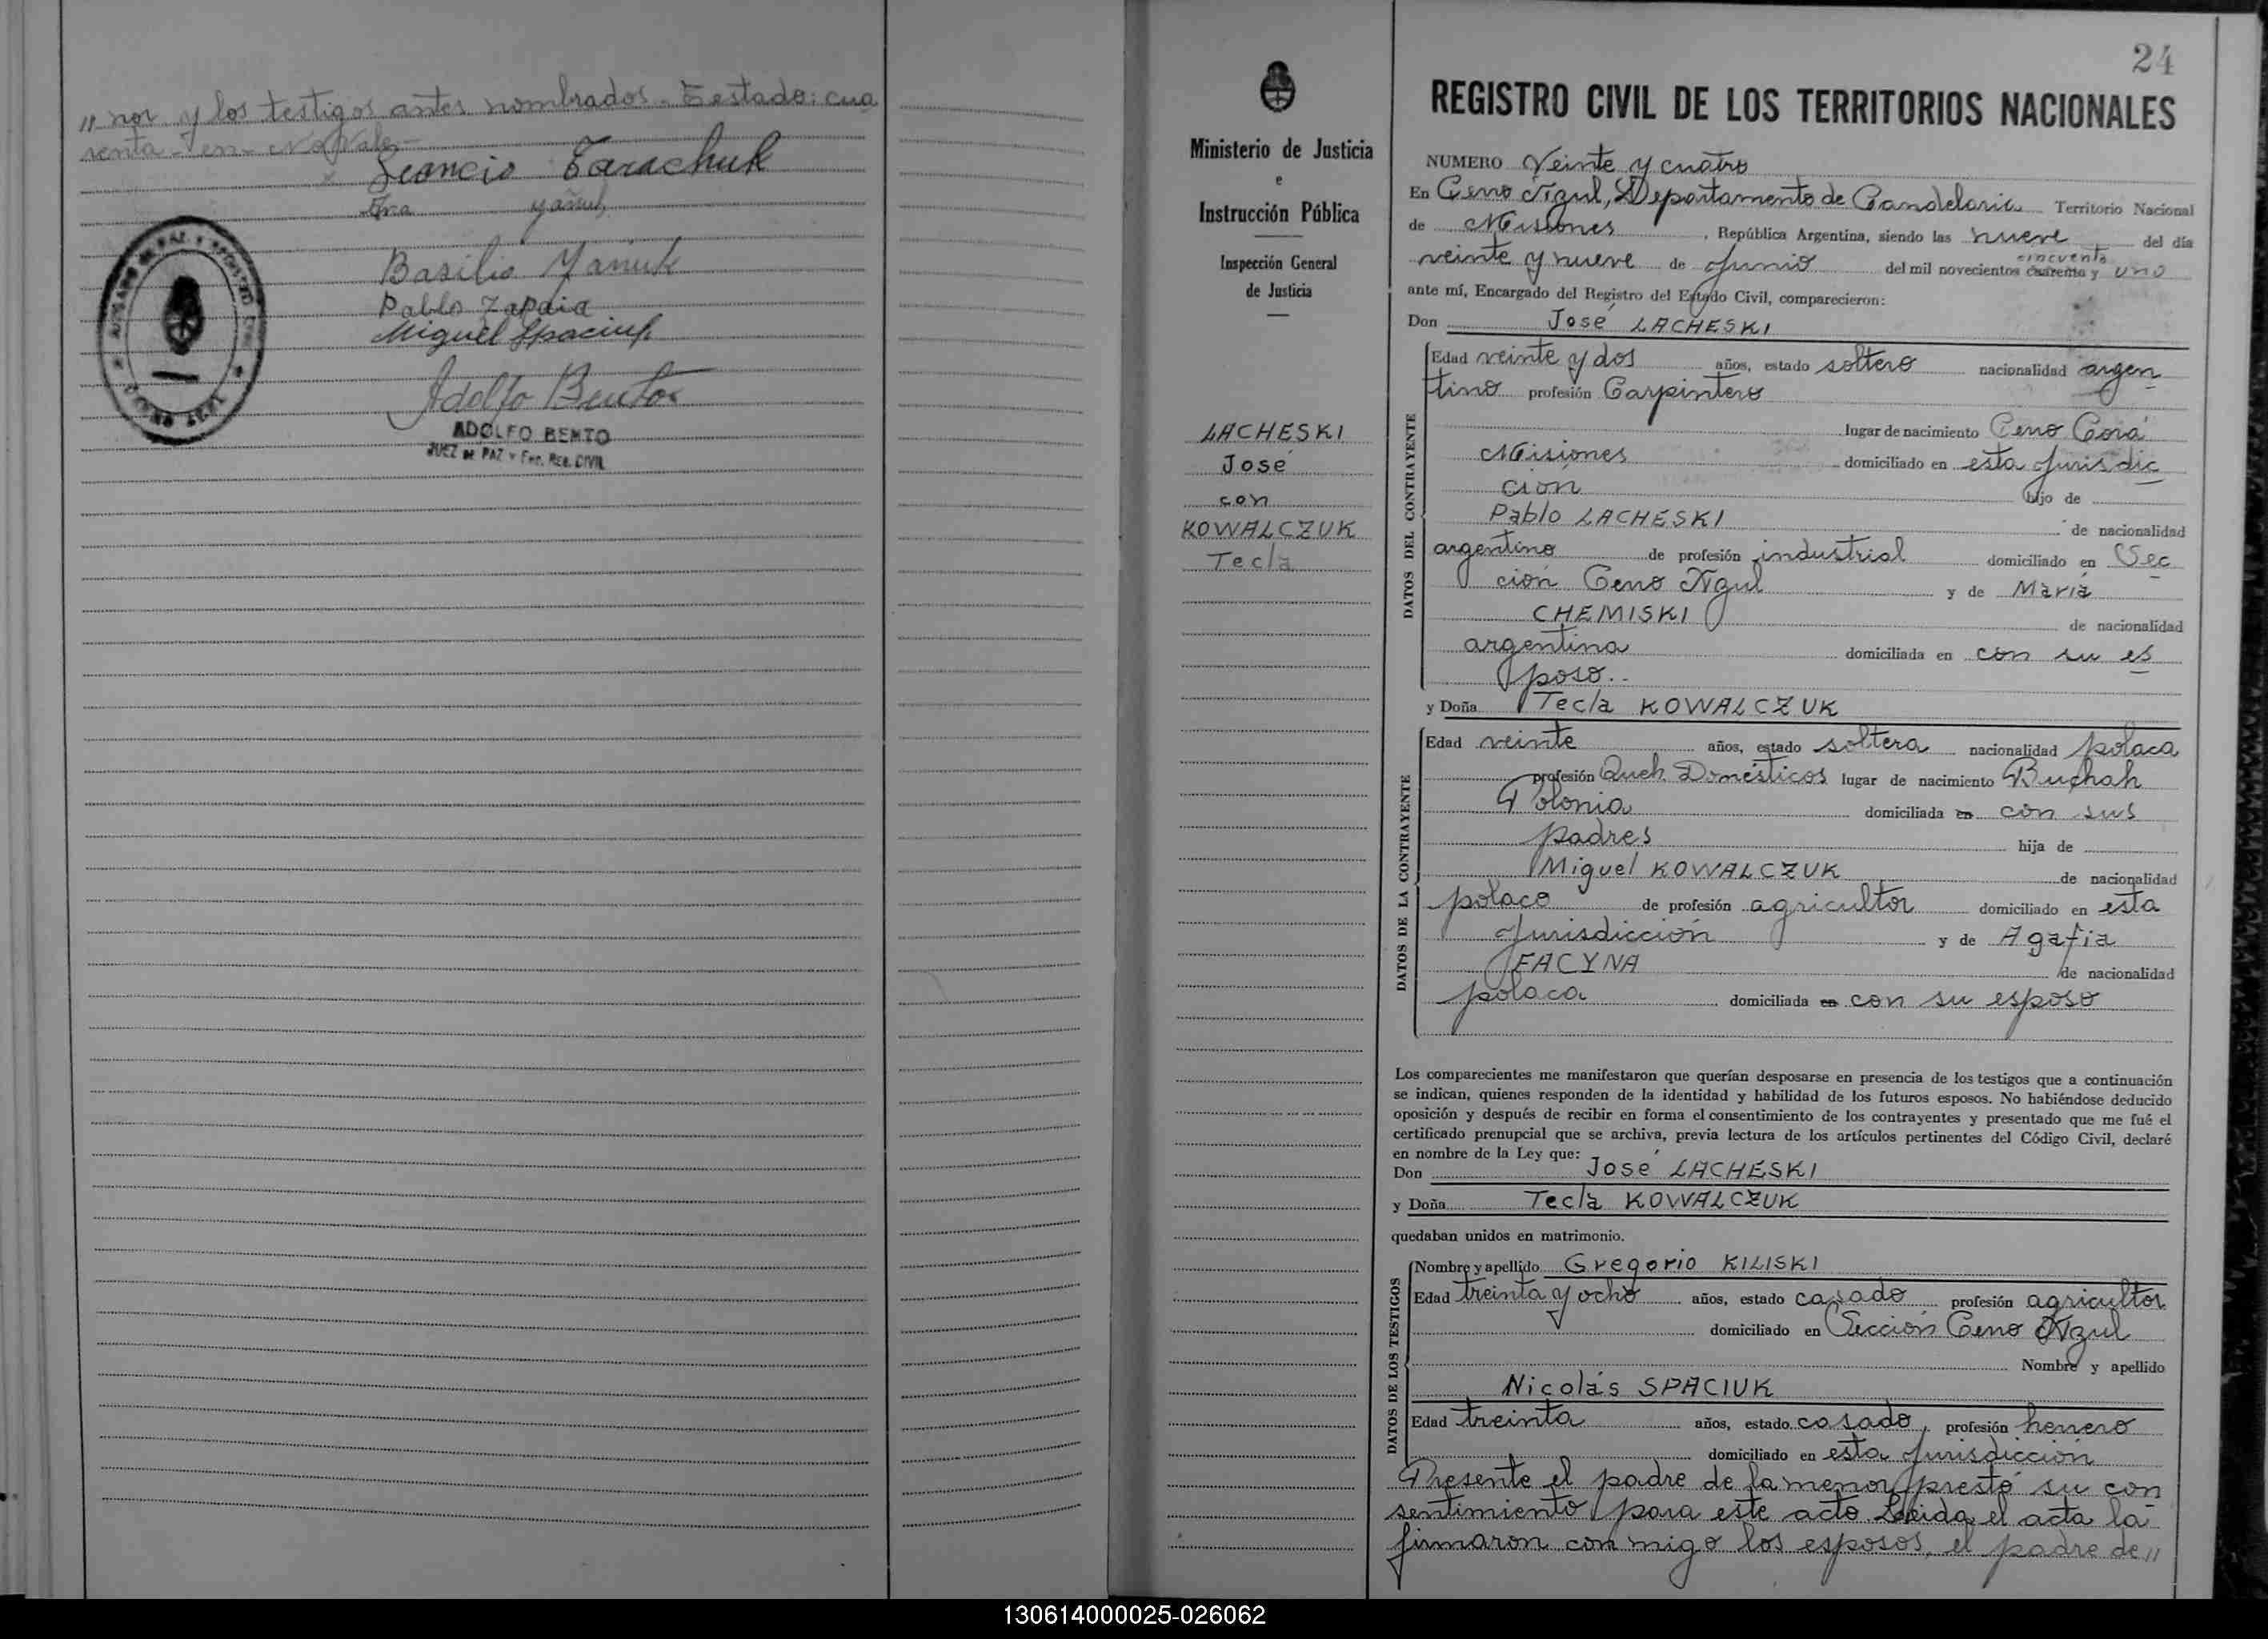 " nor y los testigos antes nombrados - Testado: cua
renta - en - No Vale -
Leoncio Tarachuk
Ana Yañuk
Basilio Yañuk
Pablo Zapaia
Miguel Spaciuk
Adolfo Bento
ADOLFO BENTO
JUEZ DE PAZ Y ENC. REG. CIVIL
Ministerio de Justicia
e
Instrucción Pública
Inspección General
de Justicia
LACHESKI
José
con
KOWALCZUK
Tecla
24
REGISTRO CIVIL DE LOS TERRITORIOS NACIONALES
NUMERO Veinte y cuatro
En Cerro Azul, Departamento de Candelaria Territorio Nacional
de Misiones, República Argentina, siendo las nueve del día
cincuenta
veinte y nueve de Junio del mil novecientos cuarenta y uno
ante mí, Encargado del Registro del Estado Civil, comparecieron:
Don José LACHESKI
DATOS DEL CONTRAYENTE
Edad veinte y dos años, estado soltero nacionalidad argen
tino profesión Carpintero
lugar de nacimiento Cerro Corá
Misiones domiciliado en esta Jurisdic
ción hijo de
Pablo LACHESKI de nacionalidad
argentino de profesión industrial domiciliado en Sec
ción Cerro Azul y de María
CHEMISKI de nacionalidad
argentina domiciliada en con su es
poso..
y Doña Tecla KOWALCZUK
DATOS DE LA CONTRAYENTE
Edad veinte años, estado soltera nacionalidad polaca
profesión Queh. Domésticos lugar de nacimiento Buchah
Polonia domiciliada en con sus
padres hija de
Miguel KOWALCZUK de nacionalidad
polaco de profesión agricultor domiciliado en esta
Jurisdicción y de Agafia
FACYNA de nacionalidad
polaca domiciliada en con su esposo
Los comparecientes me manifestaron que querían desposarse en presencia de los testigos que a continuación
se indican, quienes responden de la identidad y habilidad de los futuros esposos. No habiéndose deducido
oposición y después de recibir en forma el consentimiento de los contrayentes y presentado que me fué el
certificado prenupcial que se archiva, previa lectura de los artículos pertinentes del Código Civil, declaré
en nombre de la Ley que:
Don José LACHESKI
y Doña Tecla KOWALCZUK
quedaban unidos en matrimonio.
DATOS DE LOS TESTIGOS
Nombre y apellido Gregorio KILISKI
Edad treinta y ocho años, estado casado profesión agricultor
domiciliado en Sección Cerro Azul
Nombre y apellido
Nicolás SPACIUK
Edad treinta años, estado casado, profesión herrero
domiciliado en esta Jurisdicción
Presente el padre de la menor prestó su con
sentimiento para este acto Leida el acta la
firmaron con migo los esposos, el padre de "
130614000025-026062